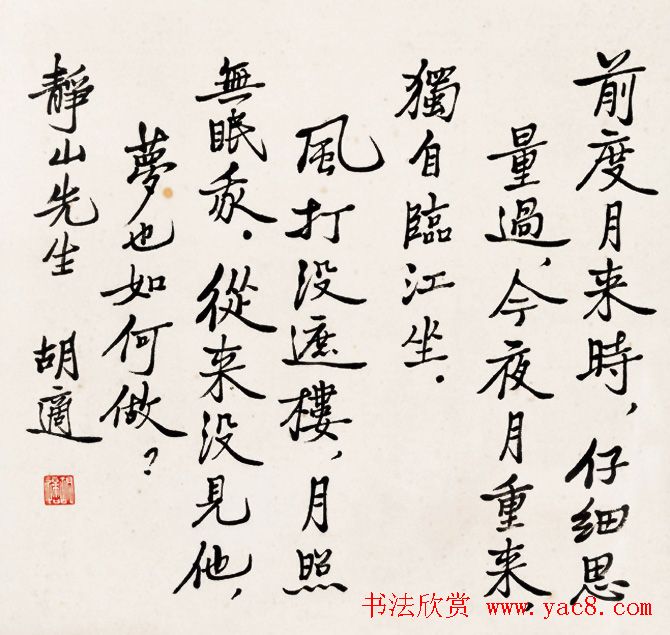 前度月来時，仔細思
量過，今夜月重来，
獨自臨江坐．
風打没遮樓，月照
無眠我．從来没見他，
夢也如何做？
靜山先生 胡適
书法欣赏 www.yac8.com